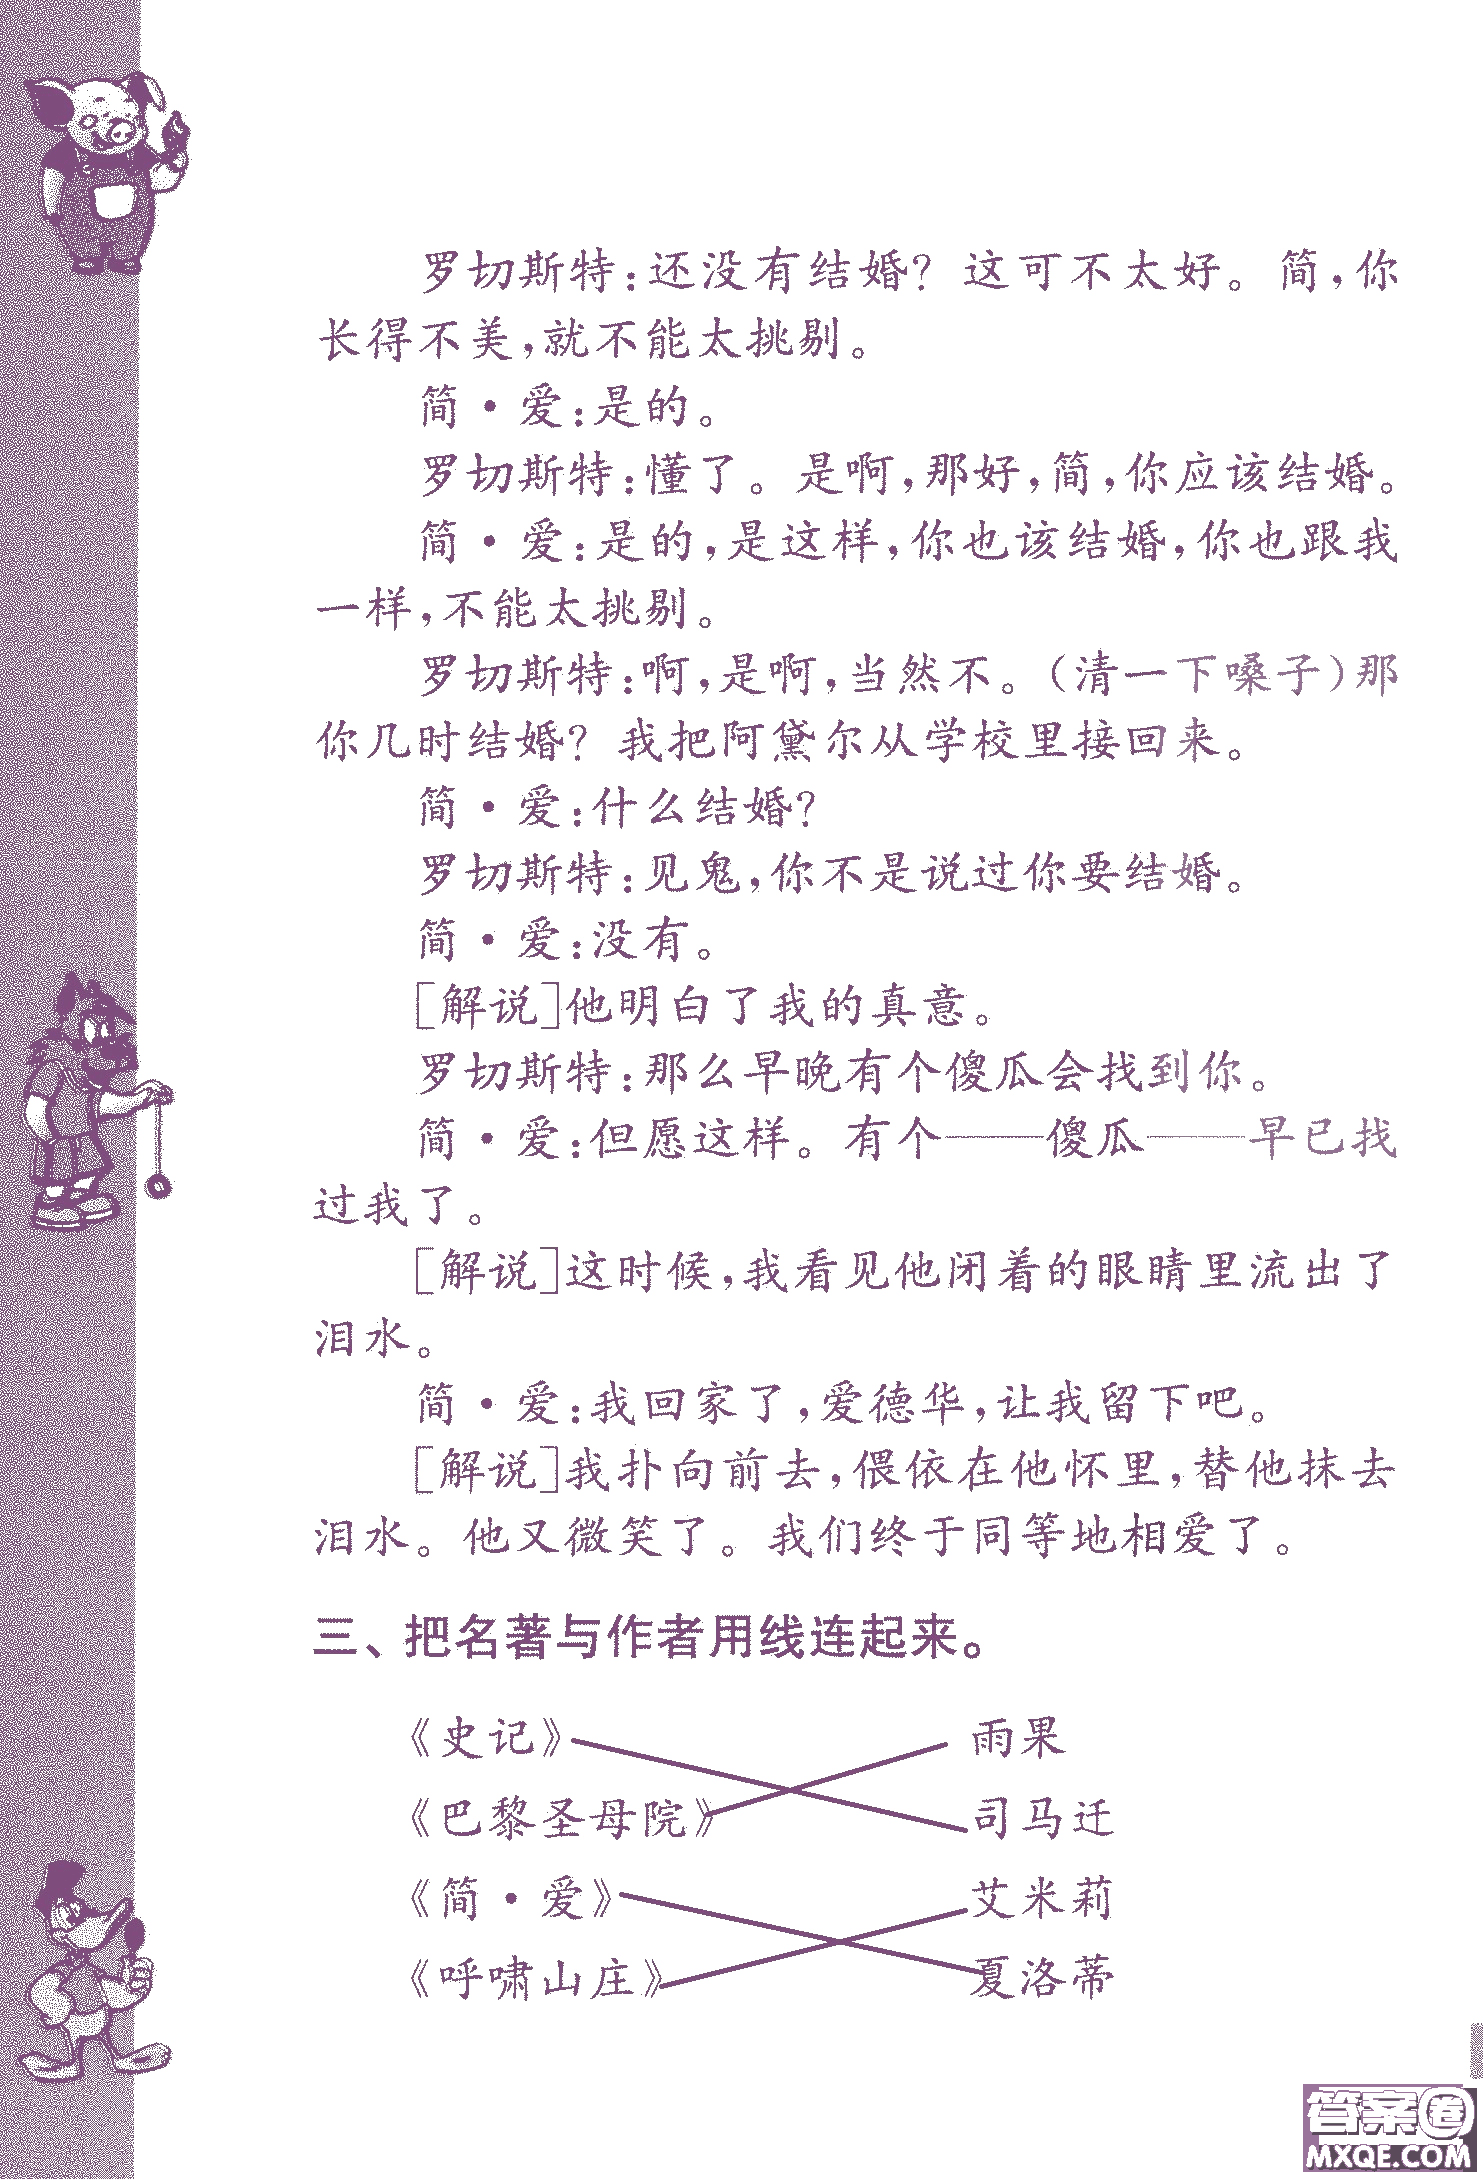 罗切斯特：还没有结婚？这可不太好。简，你
长得不美，就不能太挑剔。
简·爱：是的。
罗切斯特：懂了。是啊，那好，简，你应该结婚。
简·爱：是的，是这样，你也该结婚，你也跟我
一样，不能太挑剔。
罗切斯特：啊，是啊，当然不。（清一下嗓子）那
你几时结婚？我把阿黛尔从学校里接回来。
简·爱：什么结婚？
罗切斯特：见鬼，你不是说过你要结婚。
简·爱：没有。
[解说]他明白了我的真意。
罗切斯特：那么早晚有个傻瓜会找到你。
简·爱：但愿这样。有个——傻瓜——早已找
过我了。
[解说]这时候，我看见他闭着的眼睛里流出了
泪水。
简·爱：我回家了，爱德华，让我留下吧。
[解说]我扑向前去，偎依在他怀里，替他抹去
泪水。他又微笑了。我们终于同等地相爱了。
三、把名著与作者用线连起来。
《史记》 雨果
《巴黎圣母院》 司马迁
《简·爱》 艾米莉
《呼啸山庄》 夏洛蒂
答案圈
MXQE.COM